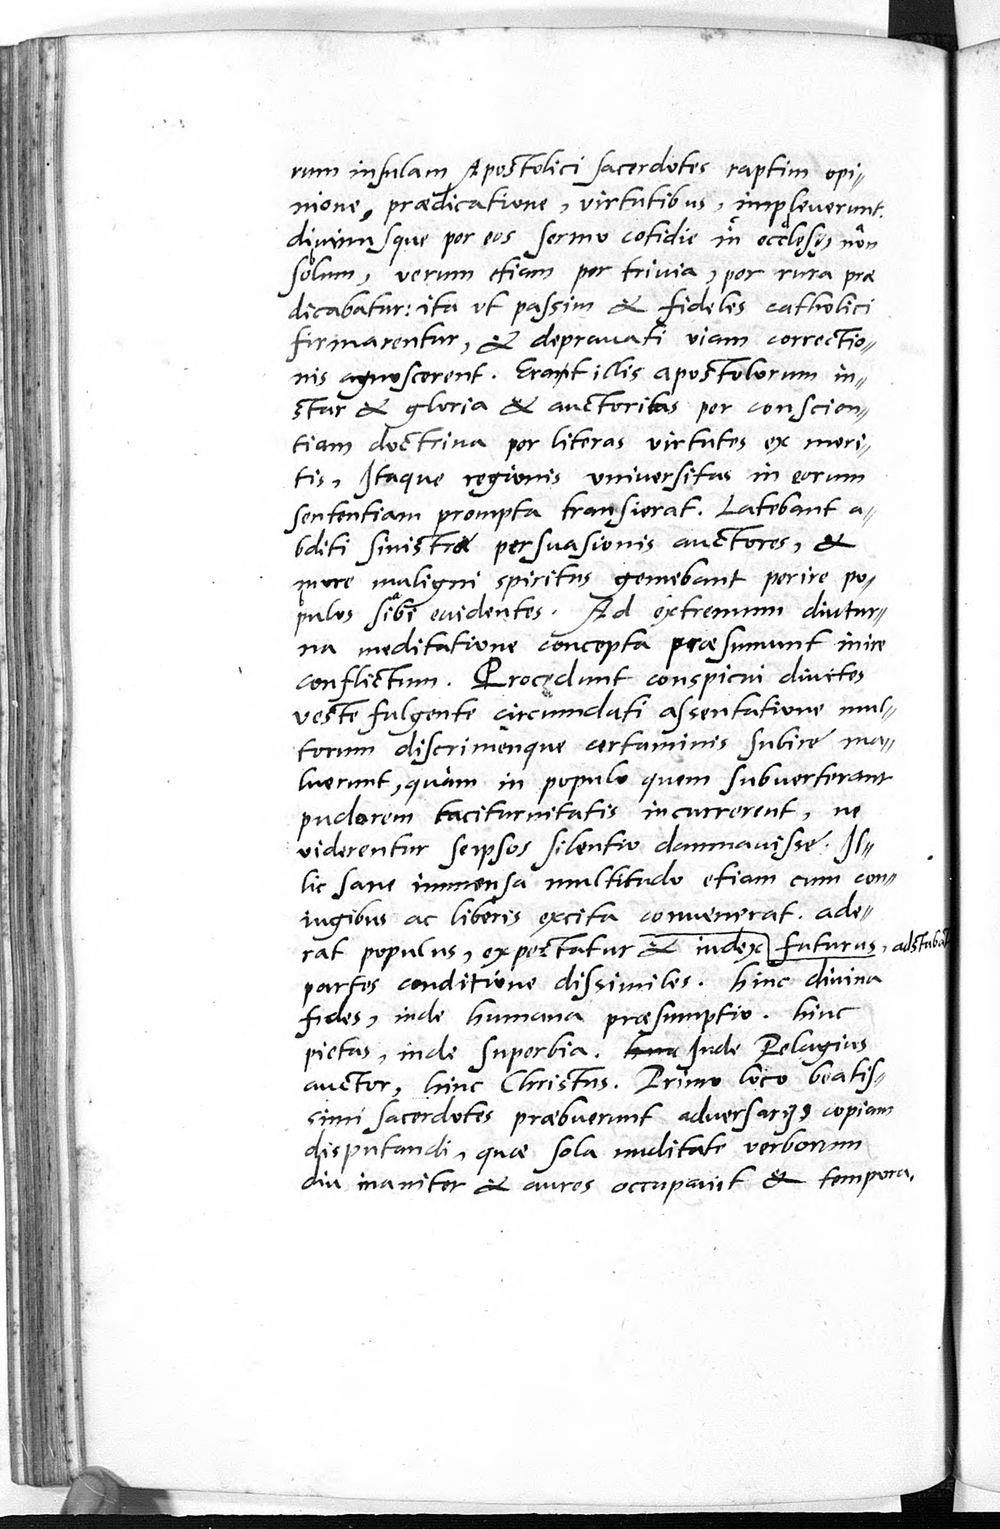 rum insulam Apostolici sacerdotes raptim opi„
nione, prædicatione, virtutibus, impleuerunt.
diuinusque per eos sermo cotidie in ecclesijs, non
solum, verum etiam per triuia, per rura præ
dicabatur: ita vt passim & fideles catholici
firmarentur, & deprauati viam correctio„
nis agnoscerent. Erant illis apostolorum in„
star & gloria & auctoritas per conscien„
tiam doctrina per literas virtutes ex meri„
tis, Itaque regionis vniuersitas in eorum
sententiam prompta transierat. Latebant a„
bditi sinistræ persuasionis auctores, &
more maligni spiritus gemebant perire po„
pulos sibi euidentes. Ad extremum diutur„
na meditatione concepta præsumunt inire
conflictum. Procedunt conspicui diuites
veste fulgente circumdati assentatione mul„
torum discrimenque certaminis subire ma„
luerunt, quàm in populo quem subuerterant
pudorem taciturnitatis incurrerent, ne
viderentur seipsos silentio damnauisse. Il„
lic sane immensa multitudo etiam cum con„
iugibus ac liberis excita conuenerat. ade„
rat populus, expectatur & iudex futurus, adstabat
partes conditione dissimiles. hinc diuina
fides, inde humana præsumptio. hinc
pietas, inde superbia. hinc Inde Pelagius
auctor, hinc Christus. Primo loco beatis„
simi sacerdotes præbuerunt aduersarijs copiam
disputandi, quæ sola nuditate verborum
diu inaniter & aures occupauit & tempora.